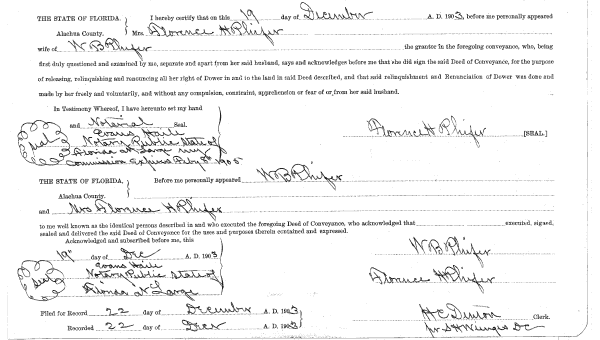 THE STATE OF FLORIDA, I hereby certify that on this 19 day of December A. D. 1903, before me personally appeared
Alachua County. Mrs Florence H Phifer
wife of W. B. Phifer the grantor in the foregoing conveyance, who, being
first duly questioned and examined by me, separate and apart from her said husband, says and acknowledges before me that she did sign the said Deed of Conveyance, for the purpose
of releasing, relinquishing and renouncing all her right of Dower in and to the land in said Deed described, and that said relinquishment and Renunciation of Dower was done and
made by her freely and voluntarily, and without any compulsion, constraint, apprehension or fear of or from her said husband.
In Testimony Whereof, I have hereunto set my hand
and Notarial Seal.
Seal
Evans Haile
Notary Public State of
Florida at Large my
Commission Expires Feby 8th 1905
Florence H Phifer [SEAL]
THE STATE OF FLORIDA, Before me personally appeared W B Phifer
Alachua County.
and Mrs Florence H Phifer
to me well known as the identical persons described in and who executed the foregoing Deed of Conveyance, who acknowledged that executed, signed,
sealed and delivered the said Deed of Conveyance for the uses and purposes therein contained and expressed.
Acknowledged and subscribed before me, this
19" day of Dec A. D. 1903
Seal
Evans Haile
Notary Public State of
Florida at Large
W B Phifer
Florence H Phifer
Filed for Record 22 day of December A. D. 1903
Recorded 22 day of Decr A. D. 1903.
H C Denton Clerk.
pr S H Wienges DC